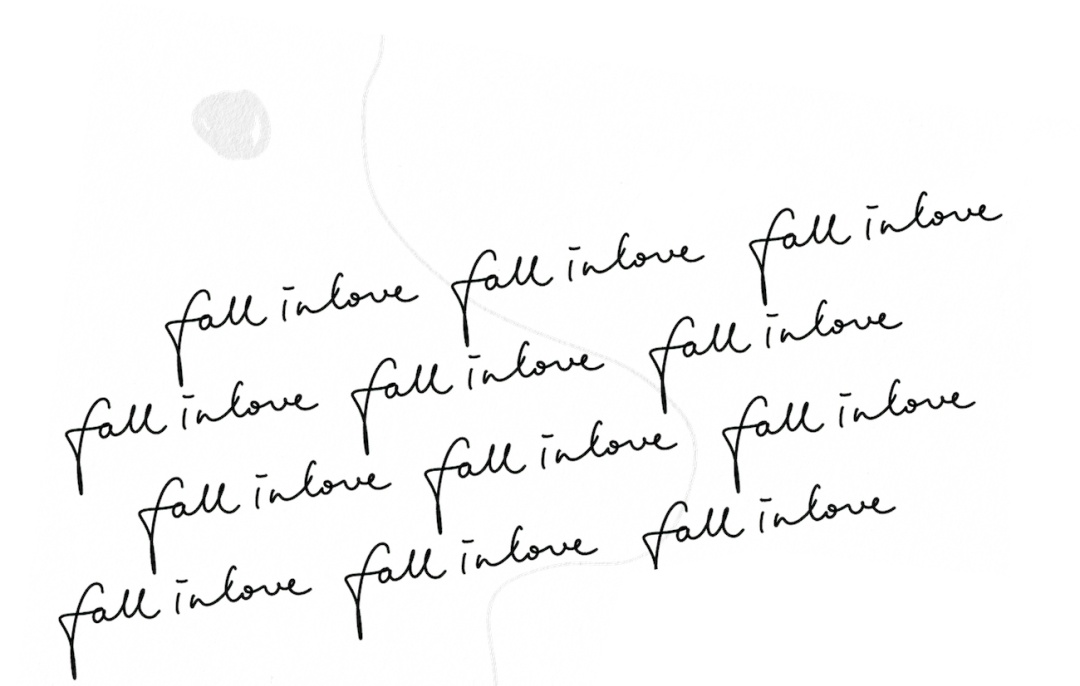 fall in love fall in love fall in love
fall in love fall in love fall in love
fall in love fall in love fall in love
fall in love fall in love fall in love